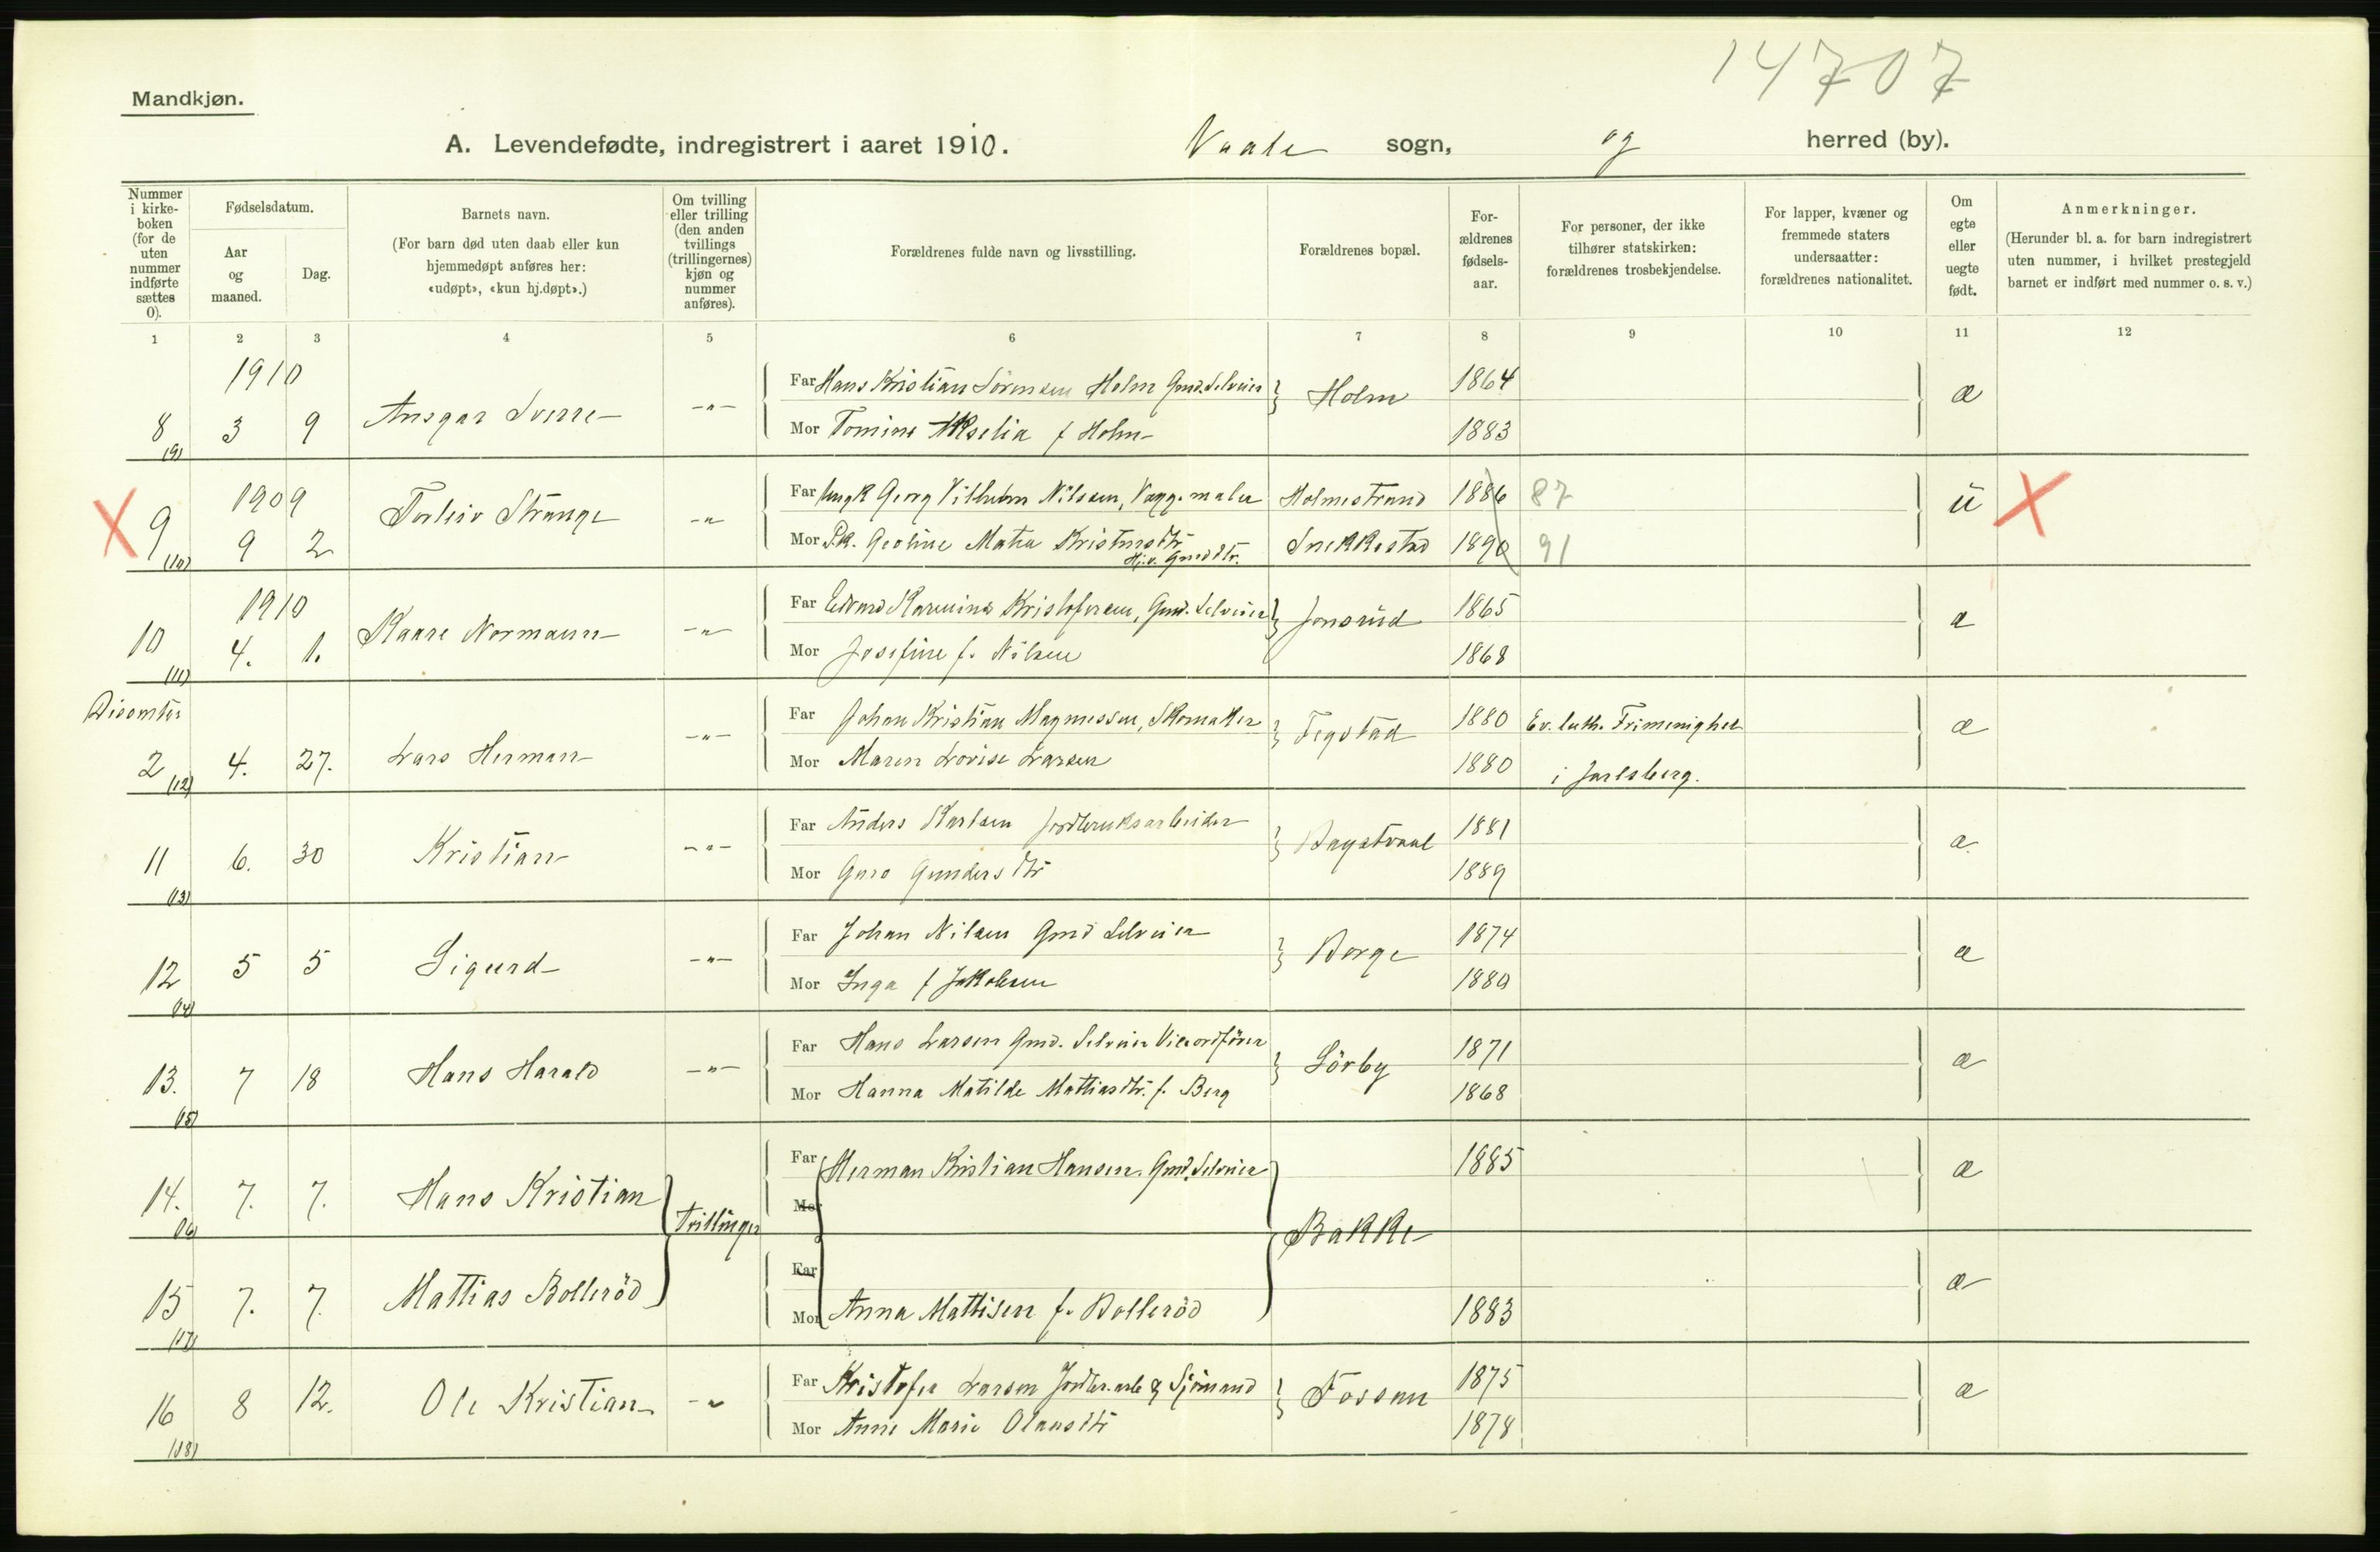 14707
Mandkjøn.
A. Levendefødte, indregistrert i aaret 1910. Vaale sogn, og herred (by).
Nummer i kirke-boken (for de uten nummer indførte sættes 0).
Fødselsdatum.
Aar og maaned.
Dag.
Barnets navn.
(For barn død uten daab eller kun hjemmedøpt anføres her: «udøpt», «kun hj.døpt».)
Om tvilling eller trilling (den anden tvillings (trillingernes) kjøn og nummer anføres).
Forældrenes fulde navn og livsstilling.
Forældrenes bopæl.
For-ældrenes fødsels-aar.
For personer, der ikke tilhører statskirken: forældrenes trosbekjendelse.
For lapper, kvæner og fremmede staters undersaatter: forældrenes nationalitet.
Om egte eller uegte født.
Anmerkninger.
(Herunder bl. a. for barn indregistrert uten nummer, i hvilket prestegjeld barnet er indført med nummer o. s. v.)
1 2 3 4 5 6 7 8 9 10 11 12
1910
8 (9) 3 9 Ansgar Sverre -"- Far Hans Kristian Sörensen Holm Gmd. Selveier Holm 1864 æ
Mor Tomine Akselia f Holm 1883
X 9 (10) 1909 9 2 Torleiv Strange -" Far Ungk Georg Vilhelm Nilssen, Vogn.maler Holmestrand 1886 87 ü X
Mor Pk. Geoline Matea Kristensdtr Hj.v. Gmddtr. Snekkestad 1890 91
1910
10 (11) 4. 1. Kaare Normann -"- Far Edvard Karenius Kristofersen, Gmd. Selveier Jonsrud 1865 æ
Mor Josefine f. Nilsen 1868
Dissenter
2 (12) 4. 27. Lars Herman -"- Far Johan Kristian Magnussen, Skomaker Fegstad 1880 Ev. luth. Frimenighet æ
Mor Maren Lovise Larsen 1880 i Jarlsberg.
11 (13) 6. 30 Kristian -"- Far Anders Karlsen Jordbruksarbeider 1881 æ
Mor Guro Gundersdtr 1889
12 (14) 5 5 Sigurd -"- Far Johan Nilsen Gmd Selveier Borge 1874 æ
Mor Inga f Jakobsen 1880
13. (15) 7 18 Hans Harald -"- Far Hans Larsen Gmd. Selveier Viceordförer Sörby 1871 æ
Mor Hanna Matilde Mattiasdtr. f. Berg 1868
14. (16) 7. 7. Hans Kristian Trillinger Far Herman Kristian Hansen. Gmd. Selveier Bakke 1885 æ
Mor
15 (17) 7. 7. Mattias Bolleröd Far æ
Mor Anna Mattisen f. Bolleröd 1883
16 (18) 8 12. Ole Kristian -" Far Kristofer Larsen Jordbr.arb & Sjömand Fossan 1875 æ
Mor Anne Marie Olausdtr 1878